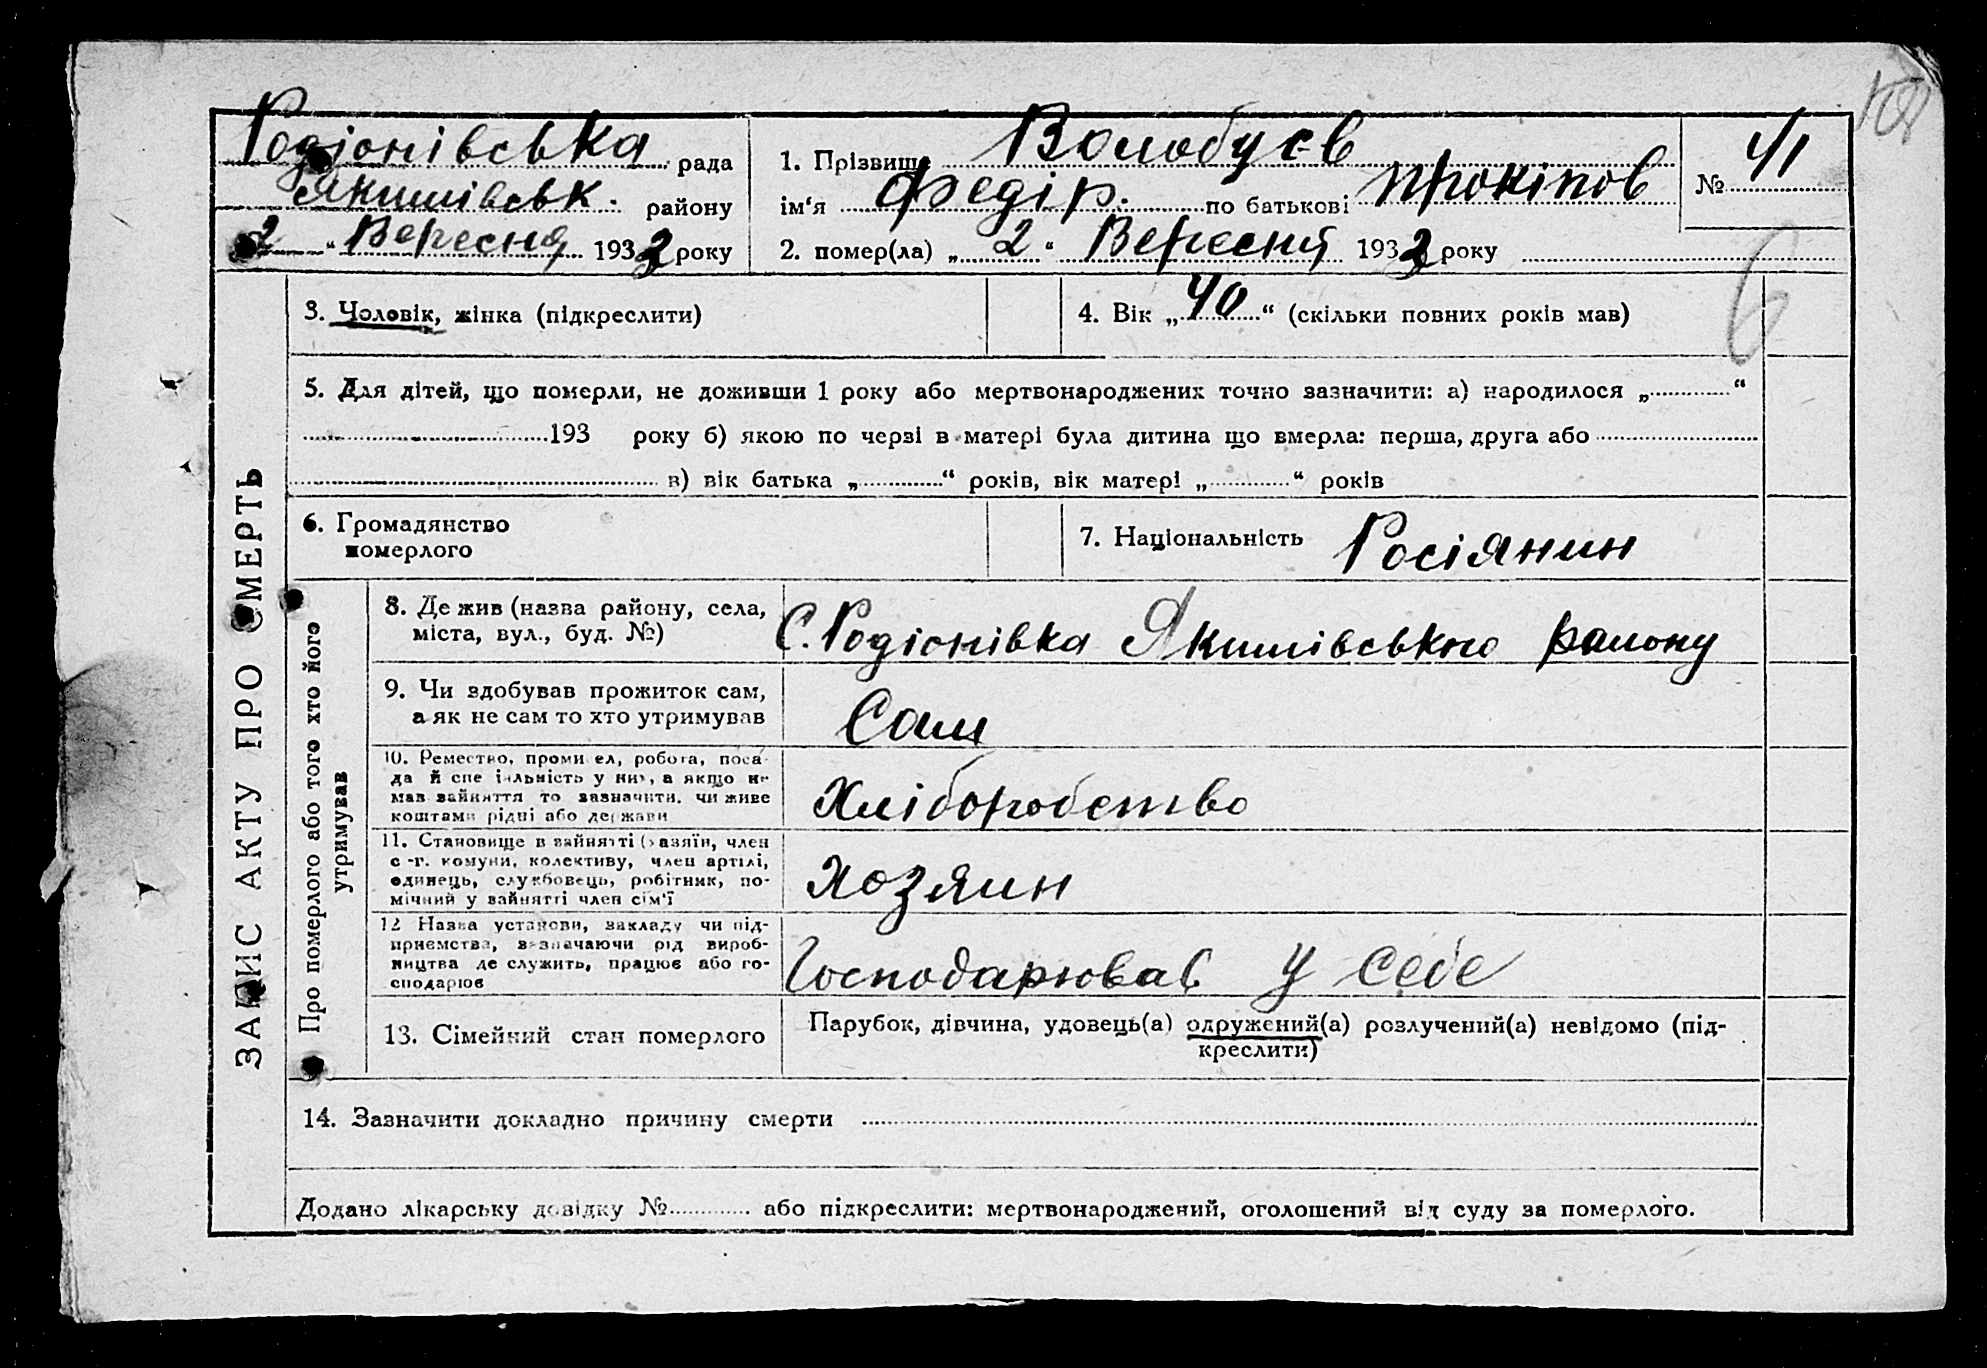 Родіонівська рада
Якимівськ. району
„2“ Вересня 1932 року
1. Прізвище Волобуєв
ім'я Федір. по батькові Прокіпов
№ 41
2. помер(ла) „2“ Вересня 1932 року
3. Чоловік, жінка (підкреслити)
4. Вік „40“ (скільки повних років мав)
5. Для дітей, що померли, не доживши 1 року або мертвонароджених точно зазначити: а) народилося „ “
193 року б) якою по черзі в матері була дитина що вмерла: перша, друга або
в) вік батька „ “ років, вік матері „ “ років
6. Громадянство
померлого
7. Національність Росіянин
ЗАПИС АКТУ ПРО СМЕРТЬ
Про померлого або того хто його
утримував
8. Де жив (назва району, села,
міста, вул., буд. №)
С. Родіонівка Якимівського району
9. Чи здобував прожиток сам,
а як не сам то хто утримував
Сам
10. Ремество, промисел, робота, поса-
да й спеціальність у них, а якщо не
мав зайняття то зазначити, чи живе
коштами рідні або держави
Хліборобство
11. Становище в зайнятті (хазяїн, член
с.-г. комуни, колективу, член артілі,
одинець, службовець, робітник, по-
мічний у зайнятті член сім'ї
Хозяин
12 Назва установи, закладу чи під-
приємства, зазначаючи рід вироб-
ництва де служить, працює або го-
сподарює
Господарював У себе
13. Сімейний стан померлого
Парубок, дівчина, удовець(а) одружений(а) розлучений(а) невідомо (під-
креслити)
14. Зазначити докладно причину смерти
Додано лікарську довідку № або підкреслити: мертвонароджений, оголошений від суду за померлого.